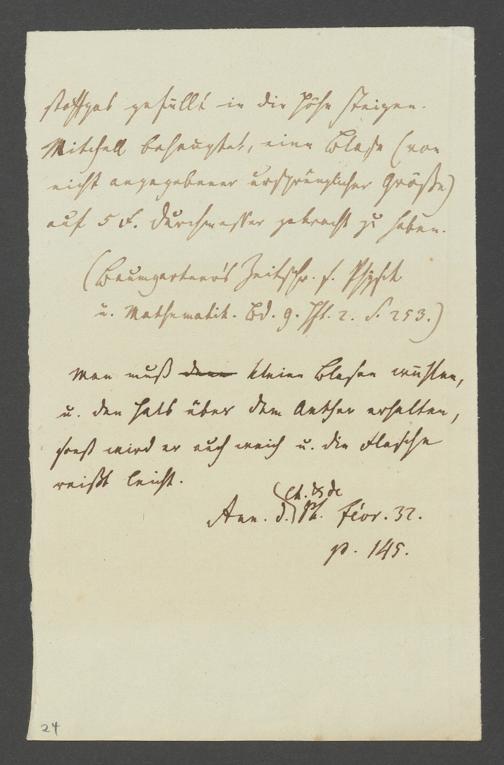 stoffgas gefüllt in die Höhe steigen.
Mitchell behauptet, eine Blase (von
nicht angegebener ursprünglicher Größe)
auf 5 F. Durchmesser gebracht zu haben.
(Baumgartner's Zeitschr. f. Physik
u. Mathematik. Bd. 9. Hft. 2. S. 253.)
Man muß kleine Blasen wählen,
u. den Hals über dem Aether erhalten,
sonst wird er auch weich u. die Flasche
reißt leicht.
Ch. & de
Ann. d. Ph. Févr. 32.
p. 145.
24